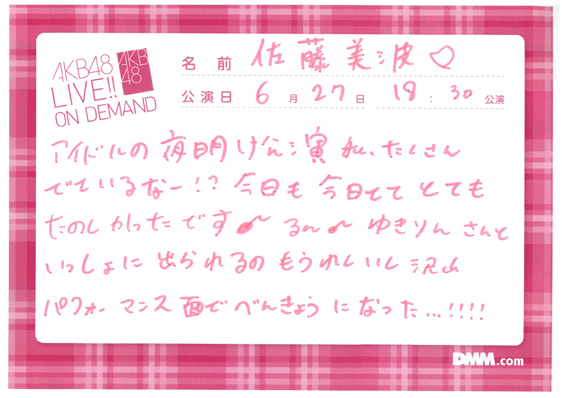 AKB48
LIVE!!
ON DEMAND
AKB
48
名前 佐藤美波♡
公演日 6月27日 18:30公演
アイドルの夜明け公演 私、たくさん
でているなー!? 今日も 今日とて とても
たのしかったです るんるん ゆきりんさんと
いっしょに 出られるの もうれしいし 沢山
パフォーマンス面で べんきょう になった...!!!!
DMM.com